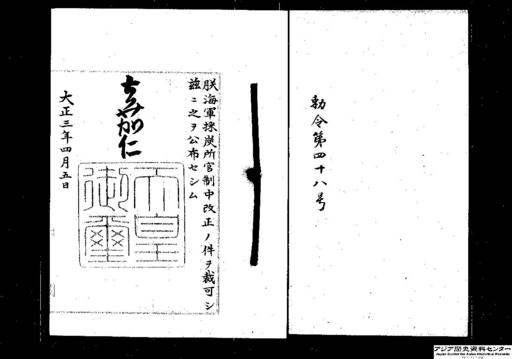 勅令第四十八号
朕海軍採炭所官制中改正ノ件ヲ裁可シ
茲ニ之ヲ公布セシム
嘉仁
大正三年四月五日
天皇
御璽
アジア歴史資料センター
Japan Center for Asian Historical Records